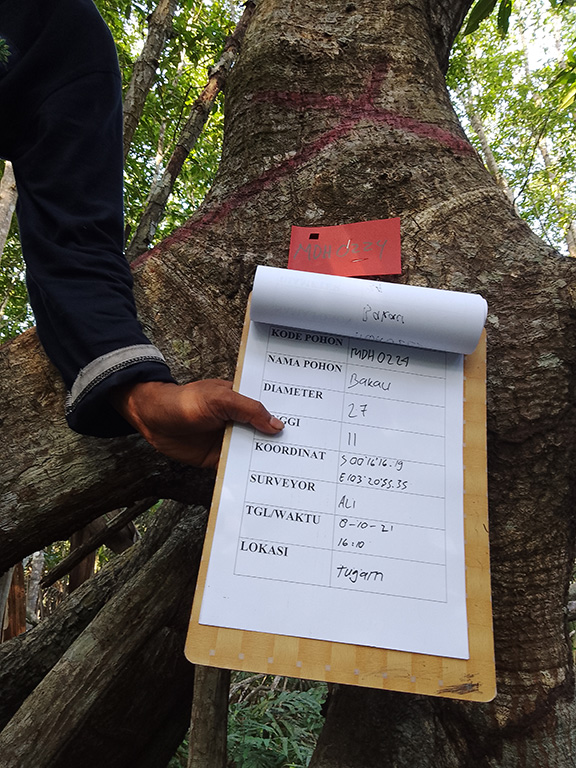 MDH0224
Bakau
KODE POHON MDH0224
NAMA POHON Bakau
DIAMETER 27
GGI 11
KOORDINAT S 00°16'16.19
E103°20'55.35
SURVEYOR ALI
TGL/WAKTU 8-10-21
16:10
LOKASI Tugam